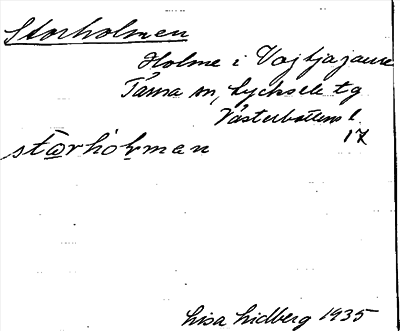 Storholmen
Holme i Vojtjajaure
Tärna sn, Lycksele tg
Västerbottens l.
17
stårhólman
Lisa Lidberg 1935